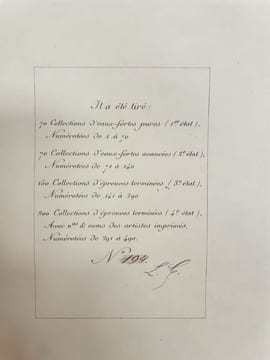 Il a été tiré:
70 Collections d'eaux-fortes pures (1er état),
Numérotées de 1 à 70
70 Collections d'eaux-fortes avancées (2e état),
Numérotées de 71 à 140
150 Collections d'épreuves terminées (3e état),
Numérotées de 141 à 290
200 Collections d'épreuves terminées (4e état),
Avec nos & noms des artistes imprimés,
Numérotées de 291 à 490.
No 194.